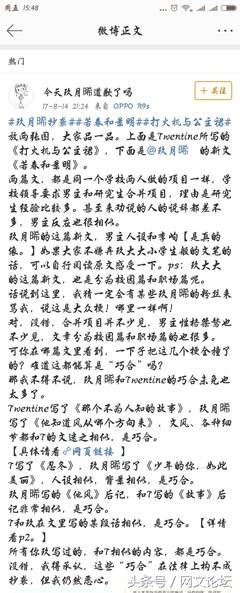 周五 15:48
微博正文
热门
今天玖月晞道歉了吗
17-8-14 21:24 来自 OPPO R9s
+ 关注
#玖月晞抄袭##若春和景明##打火机与公主裙#
放两张图，大家品一品。上面是Twentine所写的
《打火机与公主裙》，下面是@玖月晞 的新文
《若春和景明》。
两篇文，都是同一个学校两人做的项目一样，学
校领导要求男主和研究生合并项目，理由是研究
生经验比较多。甚至来劝说的人的说辞都差不
多，男主反应也很相似。
玖月晞的这篇新文，男主人设和李峋【是真的
像。】如果大家不嫌弃玖大大小学生般的文笔的
话，可以自行阅读原文感受一下。ps：玖大大
的这篇新文，也是分为校园篇和职场篇咒。
话说到这里，我猜一定会有某些玖月晞的粉丝来
骂我，说这是大众梗！哪里一样啊！
对，没错，合并项目并不少见，男主性格桀骜也
不少见，文章分为校园篇和职场篇的也很多。
可你在哪篇文里看到，一下子把这几个梗全撞了
的？难道这都能算是“巧合”吗？
那我不得不说，玖月晞和Twentine的巧合未免也
太多了。
Twentine写了《那个不为人知的故事》，玖月晞
写了《他知道风从哪个方向来》，文风、各种细
节都和T的文迷之相似，是巧合。
【具体请看 网页链接 】
T写了《忍冬》，玖月晞写了《少年的你，如此
美丽》，人设相似，背景相似，是巧合。
玖月晞写的《他风》后记，和T写的《故事》后
记非常相似，是巧合。
T和玖在文里写的某段话相似，是巧合。【详情
看p2。】
所有你玖写过的，和T相似的内容，都是巧合。
没错，我得承认，这些“巧合”在法律上构不成
抄袭，但我仍然恶心。
头条号 / 网文论坛